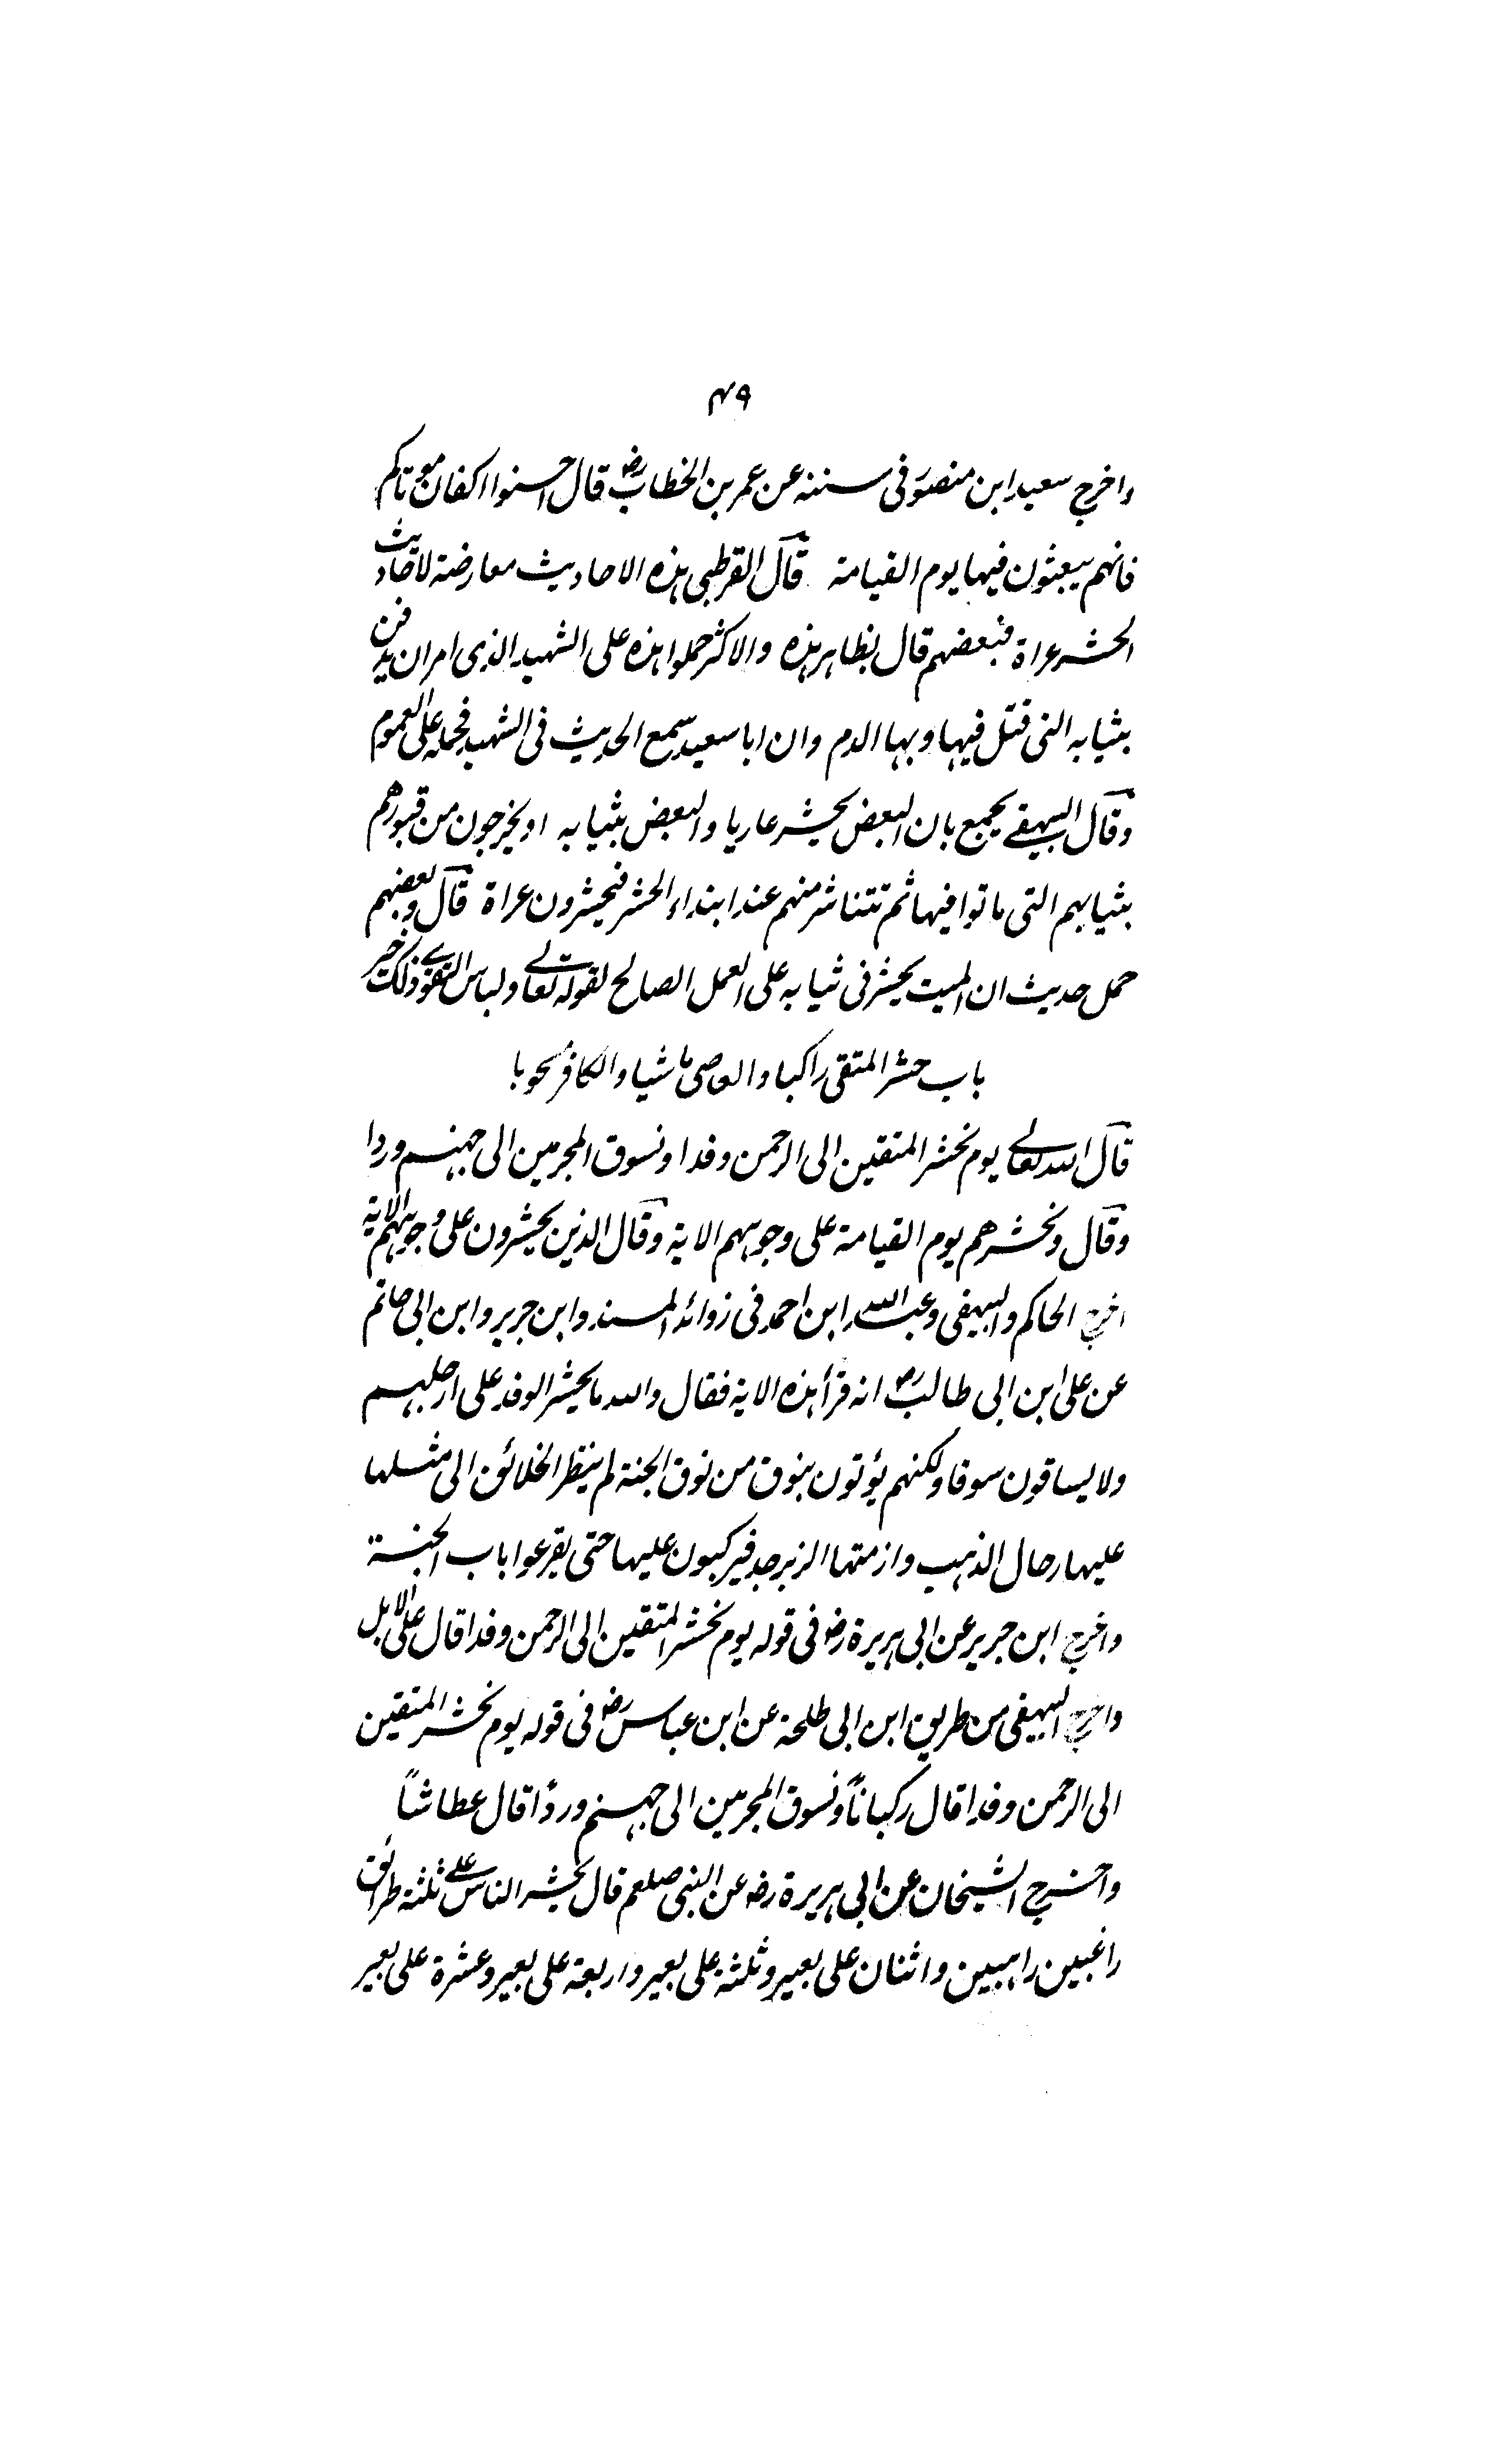 ۴۹
واخرج سعید ابن منصور فی سننہ عن عمر بن الخطاب رض قال احسنوا اکفان موتاکم
فانہم یبعثون فیہا یوم القیامۃ قال القرطبی ہذہ الاحادیث معارضۃ لاحادیث
الحشر عراۃ فبعضہم قال بظاہر ہذہ والاکثر حملوا ہذہ علی الشہید الذی امران یدفن
بثیابہ التی قتل فیہا وبہا الدم وان ابا سعید سمع الحدیث فی الشہید فحملہ علی العموم
وقال البیہقے یجمع بان البعض یحشر عاریا والبعض بثیابہ اویخرجون من قبورھم
بثیابہم التی ماتوا فیہا ثم تتناثر منہم عند ابتداء الحشر فیحشرون عراۃ وقال بعضہم
حمل حدیث ان المیت یحشر فی ثیابہ علی العمل الصالح لقولہ تعالے ولباس التقوے ذلک خیر
باب حشر المتقی راکبا والعاصی ماشیا والکافر مسحوبا
قال اللہ تعالے یوم نحشر المتقین الی الرحمن وفدا ونسوق المجرمین الی جہنم وردا
وقال ونحشرھم یوم القیامۃ علی وجوہہم الایۃ وقال الذین یحشرون علی وجوہہم الایۃ
اخرج الحاکم والبیہقی وعبد اللہ ابن احمد فی زوائد المسند وابن جریر وابن ابی حاتم
عن علی ابن ابی طالب رض انہ قرأ ہذہ الایۃ فقال واللہ ما یحشر الوفد علی ارجلہم
ولا یساقون سوقا ولکنہم یؤتون بنوق من نوق الجنۃ لم ینظر الخلائق الی مثلہا
علیہا رحال الذہب وازمتہا الزبرجد فیرکبون علیہا حتی یقرعوا باب الجنۃ
واخرج ابن جریر عن ابی ہریرۃ رض فی قولہ یوم نحشر المتقین الی الرحمن وفدا قال علی الابل
واخرج البیہقی من طریق ابن ابی طلحۃ عن ابن عباس رض فی قولہ یوم نحشر المتقین
الی الرحمن وفدا قال رکباناً ونسوق المجرمین الی جہنم وردًا قال عطاشاً
واخرج الشیخان عن ابی ہریرۃ رض عن النبی صلعم قال یحشر الناس علے ثلثۃ طرائق
راغبین راہبین واثنان علی بعیر وثلثۃ علی بعیر واربعۃ علی بعیر وعشرۃ علی بعیر